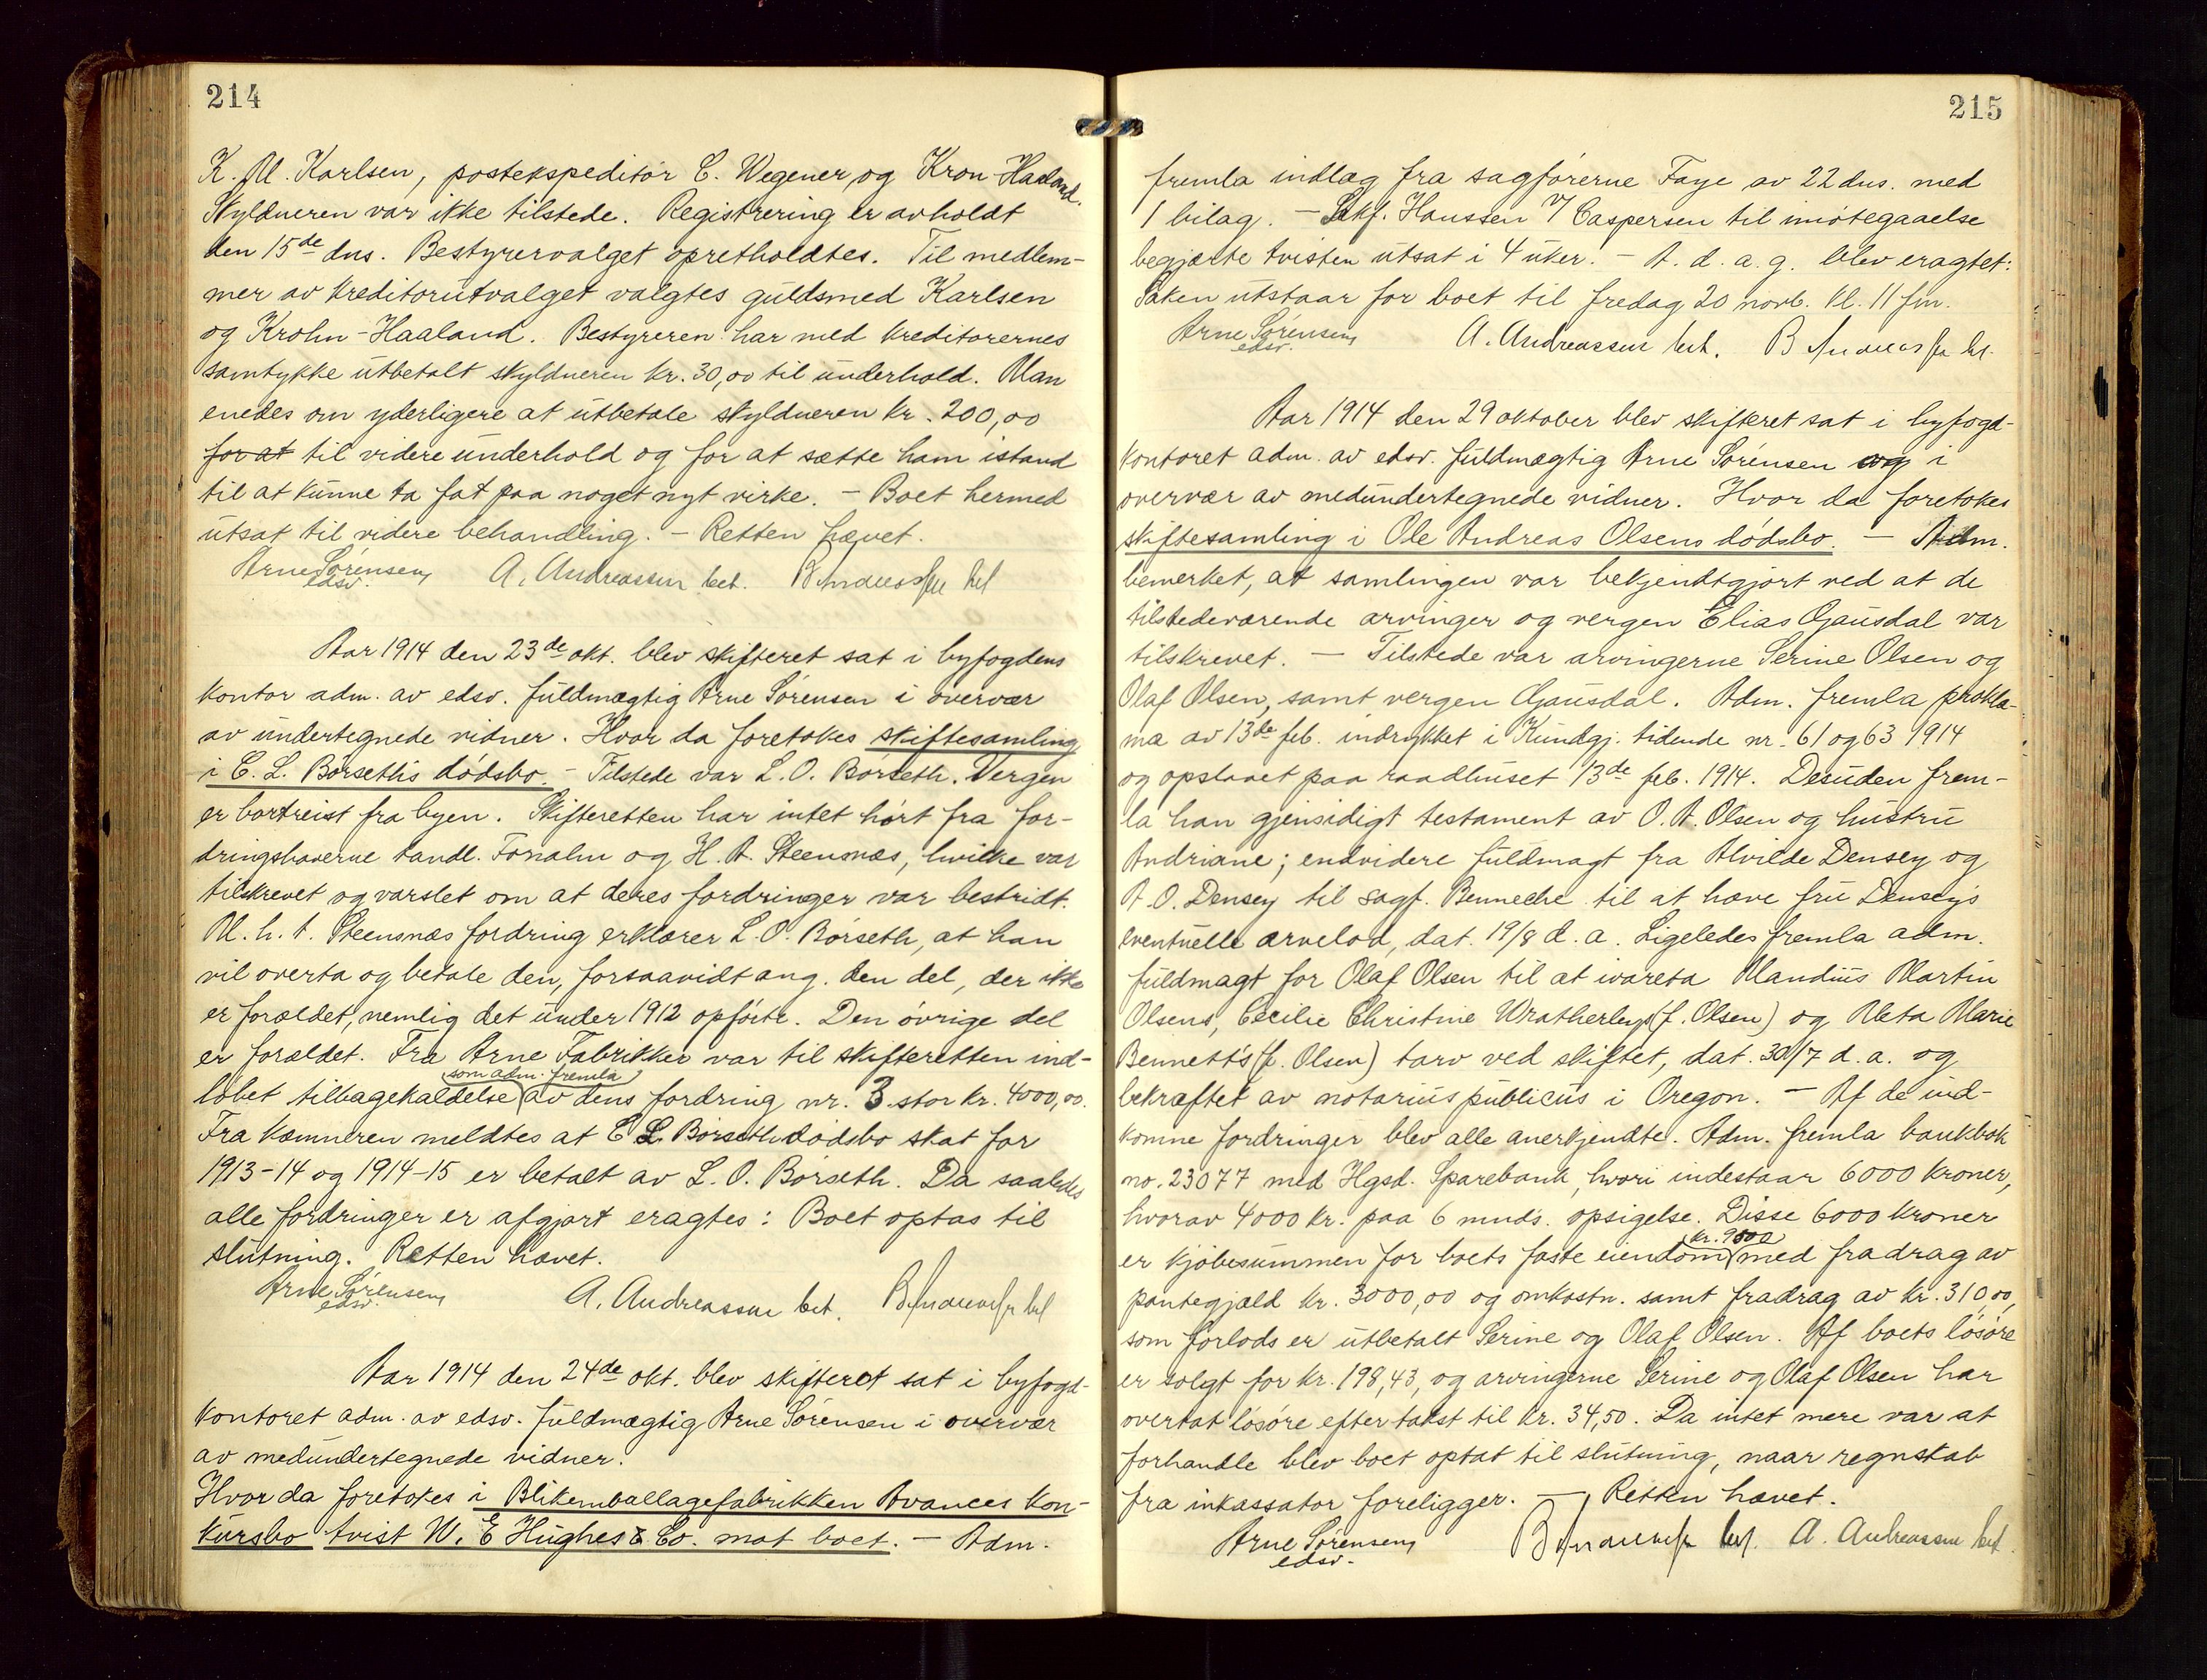 214
K. M. Karlsen, postekspeditör C. Wegener og Kron-Haaland.
Skyldneren var ikke tilstede. Registrering er avholdt
den 15de dns. Bestyrervalget opretholdtes. Til medlem-
mer av kreditorutvalget valgtes guldsmed Karlsen
og Krohn-Haaland. Bestyreren har med kreditorernes
samtykke utbetalt skyldneren kr. 30,00 til underhold. Man
enedes om yderligere at utbetale skyldneren kr. 200,00
for at til videre underhold og for at sætte ham istand
til at kunne ta fat paa noget nyt virke. – Boet hermed
utsat til videre behandling. – Retten hævet.
Arne Sörensen A. Andreassen bet.
edsv.
Aar 1914 den 23de okt. blev skifteret sat i byfogdens
kontor adm. av edsv. fuldmægtig Arne Sörensen i overvær
av undertegnede vidner. Hvor da foretokes skiftesamling
i C. L. Börseths dödsbo. – Tilstede var L. O. Börseth. Vergen
er bortreist fra byen. Skifteretten har intet hört fra for-
dringshaverne tandl. Fonahn og H. A. Steensnæs, hvilke var
tilskrevet og varslet om at deres fordringer var bestridt.
M. h. t. Steensnæs fordring erklærer L. O. Börseth, at han
vil overta og betale den, forsaavidt ang. den del, der ikke
er forældet, nemlig det under 1912 opförte. Den övrige del
er forældet. Fra Arne Fabrikker var til skifteretten ind-
som adm. fremla
löbet tilbagekaldelse av dens fordring nr. 3 stor kr. 4000,00.
Fra kæmneren meldtes at C L Börseths dödsbo skat for
1913-14 og 1914-15 er betalt av L. O. Börseth. Da saaledes
alle fordringer er afgjort eragtes: Boet optas til
slutning. Retten hævet.
Arne Sörensen A. Andreassen bet.
edsv.
Aar 1914 den 24de okt. blev skifteret sat i byfogd-
kontoret adm. av edsv. fuldmægtig Arne Sörensen i overvær
av medundertegnede vidner.
Hvor da foretokes i Blikemballagefabrikken Avances kon-
kursbo tvist W. E Hughes & Co. mot boet. – Adm.
215
fremla indlæg fra sagförerne Faye av 22 dns. med
1 bilag. – Hanssen v/ Caspersen til imötegaaelse
begjærte tvisten utsat i 4 uker. – A. d. a. g. blev eragtet:
Saken utstaar for boet til fredag 20 novb. kl. 11 fm.
Arne Sörensen A. Andreassen bet.
edsv.
Aar 1914 den 29 oktober blev skifteret sat i byfogd-
kontoret adm. av edsv. fuldmægtig Arne Sörensen og i
overvær av medundertegnede vidner. Hvor da foretokes
skiftesamling i Ole Andreas Olsens dödsbo. – Adm.
bemerket, at samlingen var bekjendtgjört ved at de
tilstedeværende arvinger og vergen Elias Gjausdal var
tilskrevet. – Tilstede var arvingerne Serine Olsen og
Olaf Olsen, samt vergen Gjausdal. Adm. fremla prokla-
ma av 13de feb. indrykket i Kundgj. tidende nr. 61 og 63 1914
og opslaaet paa raadhuset 13de feb. 1914. Desuden frem-
la han gjensidigt testament av O. A. Olsen og hustru
Andriane; endvidere fuldmagt fra Alvilde Densey og
A. O. Densey til sagf. Benneche til at hæve fru Densey's
eventuelle arvelod, dat. 19/8 d. a. Ligeledes fremla adm.
fuldmagt for Olaf Olsen til at ivareta Mandius Martin
Olsens, Cecilie Christine (f. Olsen) og Meta Marie
Bennett's (f. Olsen) tarv ved skiftet, dat. 30/7 d. a. og
bekræftet av notarius publicus i Oregon. – Af de ind-
komne fordringer blev alle anerkjendte. Adm. fremla bankbok
no. 23077 med Hgsd. Sparebank, hvori indestaar 6000 kroner,
hvorav 4000 kr. paa 6 mnds. opsigelse. Disse 6000 kroner
kr. 9500
er kjöbesummen for boets faste eiendom med fradrag av
pantegjæld kr. 3000,00 og omkostn. samt fradrag av kr. 310,00,
som forlods er utbetalt Serine og Olaf Olsen. Af boets lösöre
er solgt for kr. 198,43, og arvingerne Serine og Olaf Olsen har
overtat lösöre efter takst til kr. 34,50. Da intet mere var at
forhandle blev boet optat til slutning, naar regnskab
fra inkassator foreligger. – Retten hævet.
Arne Sörensen A. Andreassen bet.
edsv.